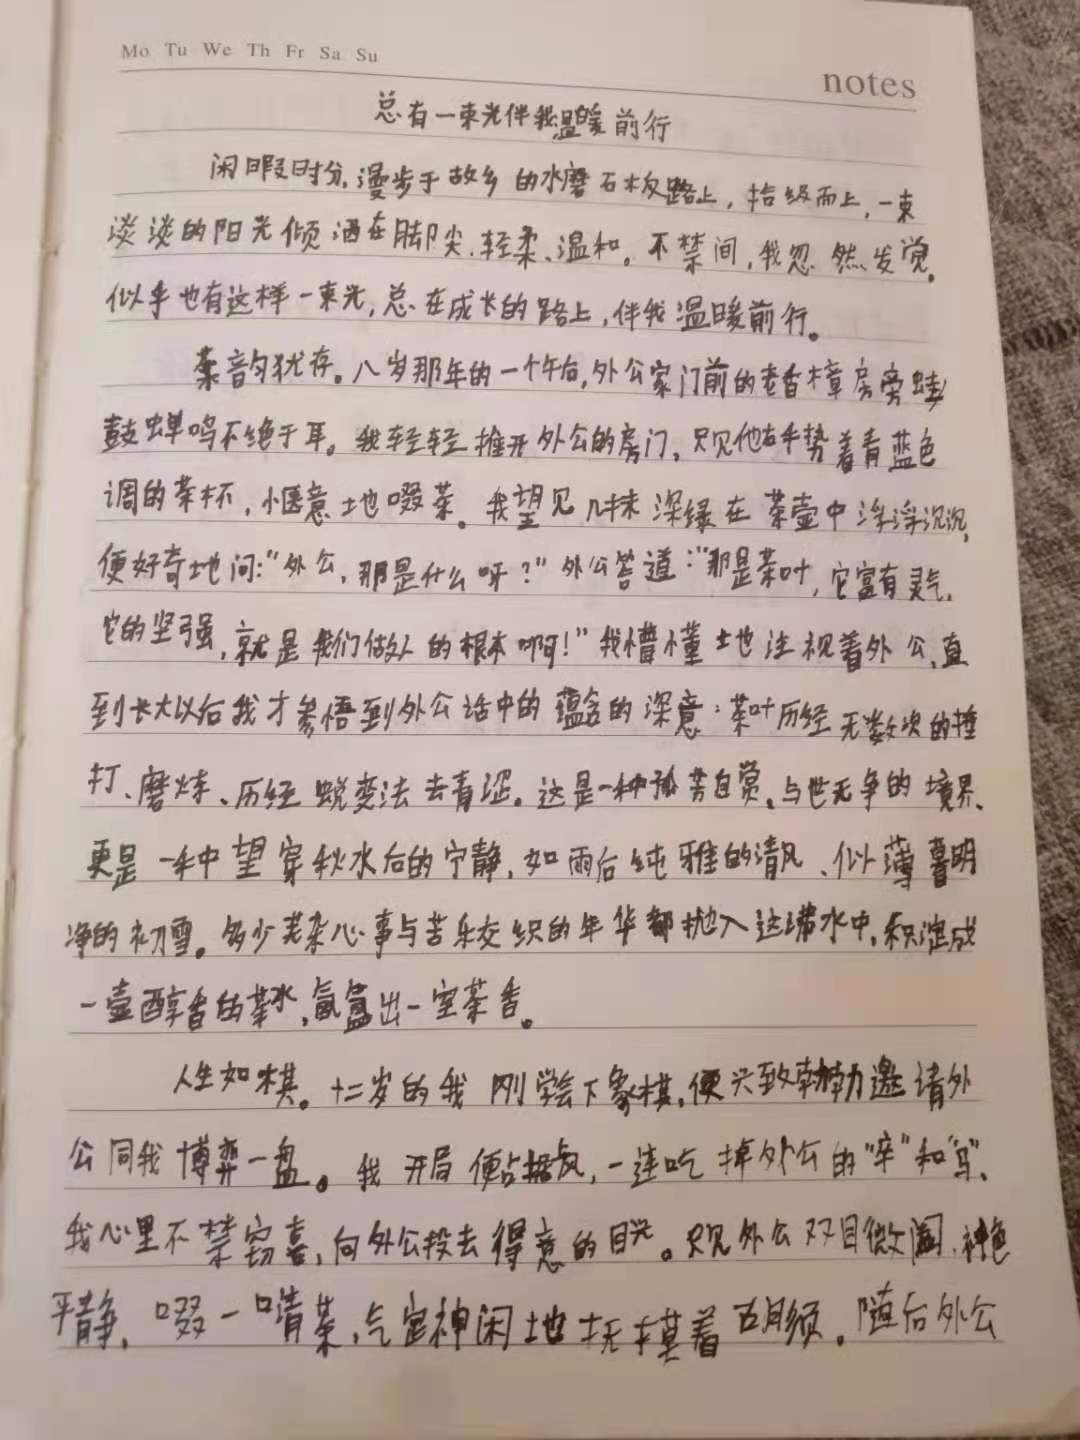 Mo Tu We Th Fr Sa Su
notes
总有一束光伴我温暖前行
闲暇时分,漫步于故乡的水磨石板路上,拾级而上,一束
淡淡的阳光倾洒在脚尖,轻柔、温和。不禁间,我忽然发觉,
似乎也有这样一束光,总在成长的路上,伴我温暖前行。
茶韵犹存。八岁那年的一个午后,外公家门前的老香樟房旁蛙
鼓蝉鸣不绝于耳。我轻轻推开外公的房门,只见他右手势着青蓝色
调的茶杯,惬意地啜茶。我望见几抹深绿在茶壶中浮浮沉沉,
便好奇地问:“外公,那是什么呀?”外公答道:“那是茶叶,它富有灵气,
它的坚强,就是我们做人的根本啊!”我懵懂地注视着外公,直
到长大以后我才参悟到外公话中的蕴含的深意:茶叶历经无数次的捶
打、磨炼、历经蜕变法去青涩。这是一种孤芳自赏、与世无争的境界、
更是一种望穿秋水后的宁静,如雨后纯雅的清风、似薄暮明
净的初雪。多少芜杂心事与苦乐交织的年华都抛入这沸水中,积淀成
一壶醇香的茶水,氤氲出一室茶香。
人生如棋。十二岁的我刚学会下象棋,便兴致勃勃邀请外
公同我博弈一盘。我开局便占据上风,一连吃掉外公的“卒”和“马”,
我心里不禁窃喜,向外公投去得意的目光。只见外公双目微阖,神色
平静,啜一口清茶,气定神闲地抚摸着胡须。随后外公